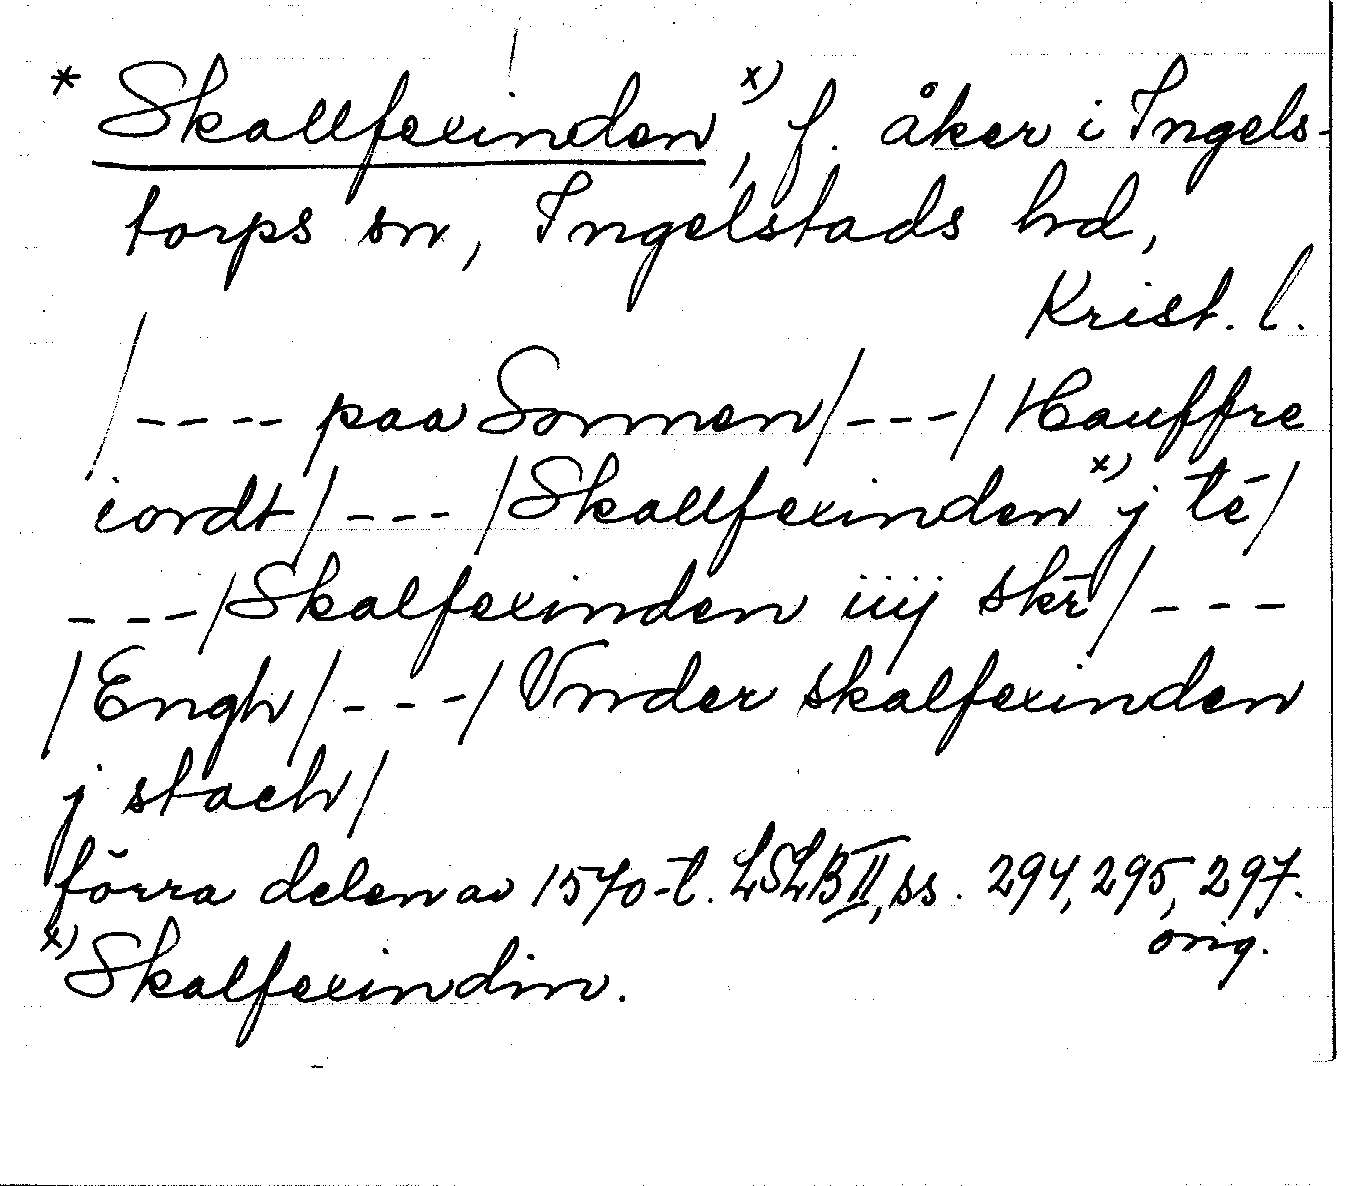 * Skallfexinden x), f. åker i Ingels-
torps sn, Ingelstads hd,
Krist. l.
/---- paa Sonnen/---/ Hauffre
iordt/---/Skallfexinden x) j té/
---/Skalfexinden iiij skr̄/---
/Engh/---/Vnder skalfexinden
j stach/
förra delen av 1570-t. LSLB II, ss. 294, 295, 297.
orig.
x) Skalfexindin.